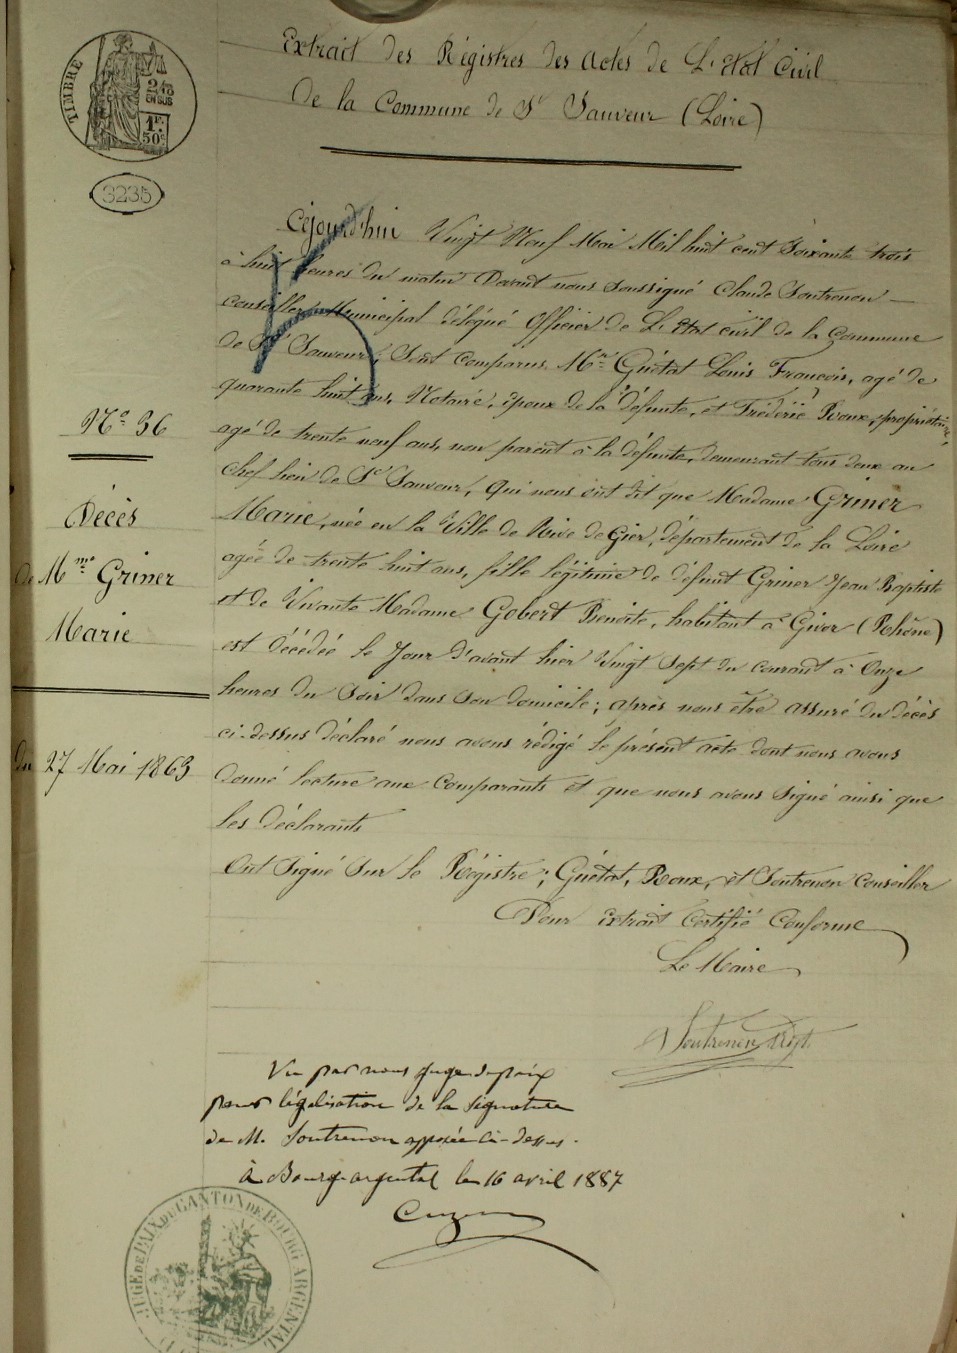 Extrait des Régistres des Actes de L'Etat Civil
de la Commune de St Sauveur (Loire)
TIMBRE
2/10
EN SUS
1F.
50c
3235
Cejourd'hui Vingt Neuf Mai Mil huit cent Soixante trois
à huit heures du matin Devant nous soussigné Claude Soutrenon
conseiller Municipal délégué Officier de L'Etat civil de la Commune
de St Sauveur, Sont comparus Mrs Guétat Louis François, agé de
quarante huit ans, Notaire, époux de la défunte, et Fréderic Roux, propriétaire,
agé de trente neuf ans, non parent à la défunte, demeurant tous deux au
Chef lieu de St Sauveur, Qui nous ont dit que Madame Griner
Marie, née en la Ville de Rive de Gier, département de la Loire
agée de trente huit ans, fille légitime de défunt Griner Jean Baptiste
et de Vivante Madame Gobert Benoite, habitant à Givor (Rhône)
est décédée le Jour d'avant hier Vingt Sept du courant à Onze
heures du Soir dans son domicile; après nous être assuré du décès
ci-dessus déclaré nous avons rédigé le présent acte dont nous avons
donné lecture aux Comparants et que nous avons Signé ainsi que
les déclarants
Ont Signé Sur le Régistre; Guétat, Roux, et Soutrenon conseiller
Pour Extrait Certifié Conforme
Le Maire
Soutrenon
No 36
Décès
de Mme Griner
Marie
du 27 Mai 1863
Vu par nous Juge de paix
pour légalisation de la signature
de M. Soutrenon apposée ci-dessus.
à Bourg-argental le 16 avril 1887
JUGE DE PAIX DU CANTON DE BOURG ARGENTAL